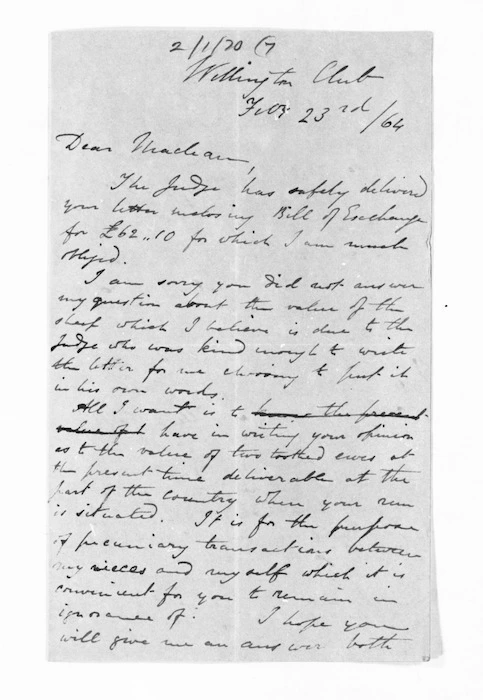 2/1/20 (7
Wellington Club
Feby 23rd/64
Dear Maclean,
The Judge has safely delivered
your letter enclosing Bill of Exchange
for £62..10 for which I am much
obliged.
I am sorry you did not answer
my question about the value of the
sheep which I believe is due to the
Judge who was kind enough to write
the letter for me choosing to put it
in his own words.
All I want is to have the present
value of t have in writing your opinion
as to the value of two toothed ewes at
the present time deliverable at the
part of the country where your run
is situated. It is for the purpose
of pecuniary transactions between
my nieces and myself which it is
convenient for you to remain in
ignorance of. I hope you
will give me an answer both